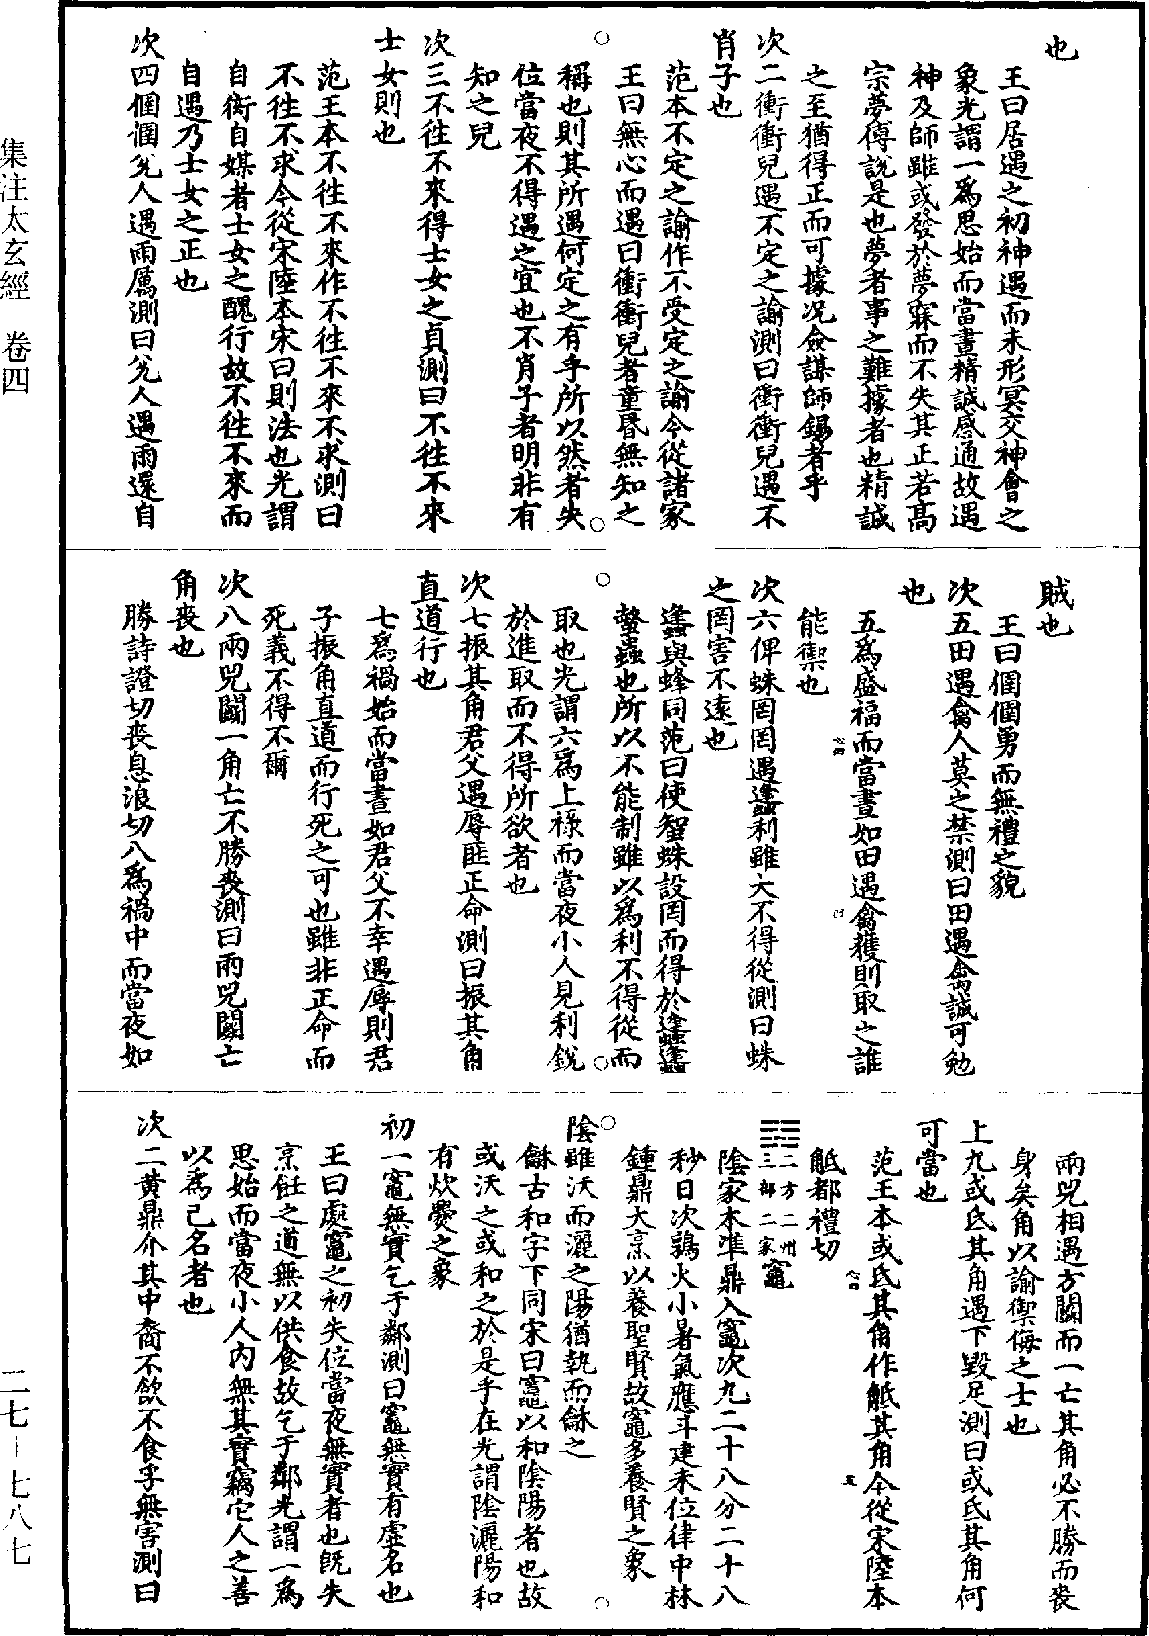 也
王曰居遇之初神遇而未形冥交神會之
象光謂一爲思始而當晝精誠感通故遇
神及師雖或發於夢寐而不失其正若高
宗夢傅說是也夢者事之難據者也精誠
之至猶得正而可據况僉謀師錫者乎
次二衝衝兒遇不定之諭測曰衝衝兒遇不
肖子也
范本不定之諭作不受定之諭今從諸家
王曰無心而遇曰衝衝兒者童昬無知之
稱也則其所遇何定之有乎所以然者失
位當夜不得遇之宜也不肖子者明非有
知之兒
次三不往不來得士女之貞測曰不往不來
士女則也
范王本不往不來作不往不來不求測曰
不往不求今從宋陸本宋曰則法也光謂
自衒自媒者士女之醜行故不往不來而
自遇乃士女之正也
次四個個兊人遇雨厲測曰兊人遇雨還自
賊也
王曰個個勇而無禮之貌
次五田遇禽人莫之禁測曰田遇禽誠可勉
也
五爲盛福而當晝如田遇禽獲則取之誰
能禦也
次六俾蛛罔罔遇䗬利雖大不得從測曰蛛
之罔害不遠也
䗬與蜂同范曰使智蛛設罔而得於䗬䗬
螫蟲也所以不能制雖以爲利不得從而
取也光謂六爲上祿而當夜小人見利銳
於進取而不得所欲者也
次七振其角君父遇辱匪正命測曰振其角
直道行也
七爲禍始而當晝如君父不幸遇辱則君
子振角直道而行死之可也雖非正命而
死義不得不爾
次八兩兕鬬一角亡不勝喪測曰兩兕鬬亡
角喪也
勝詩證切喪息浪切八爲禍中而當夜如
兩兕相遇方鬬而一亡其角必不勝而喪
身矣角以諭禦侮之士也
上九或氐其角遇下毀足測曰或氐其角何
可當也
范王本或氐其角作觝其角今從宋陸本
觝都禮切
𝌱三方二州三部二家竈
陰家木準鼎入竈次九二十八分二十八
秒日次鶉火小暑氣應斗建未位律中林
鍾鼎大烹以養聖賢故竈多養賢之象
陰雖沃而灑之陽猶執而龢之
龢古和字下同宋曰竈以和陰陽者也故
或沃之或和之於是乎在光謂陰灑陽和
有炊爨之象
初一竈無實乞于鄰測曰竈無實有虛名也
王曰處竈之初失位當夜無實者也旣失
烹飪之道無以供食故乞于鄰光謂一爲
思始而當夜小人內無其實竊它人之善
以爲己名者也
次二黃鼎介其中裔不飲不食孚無害測曰
集注太玄經　卷四
二七—七八七